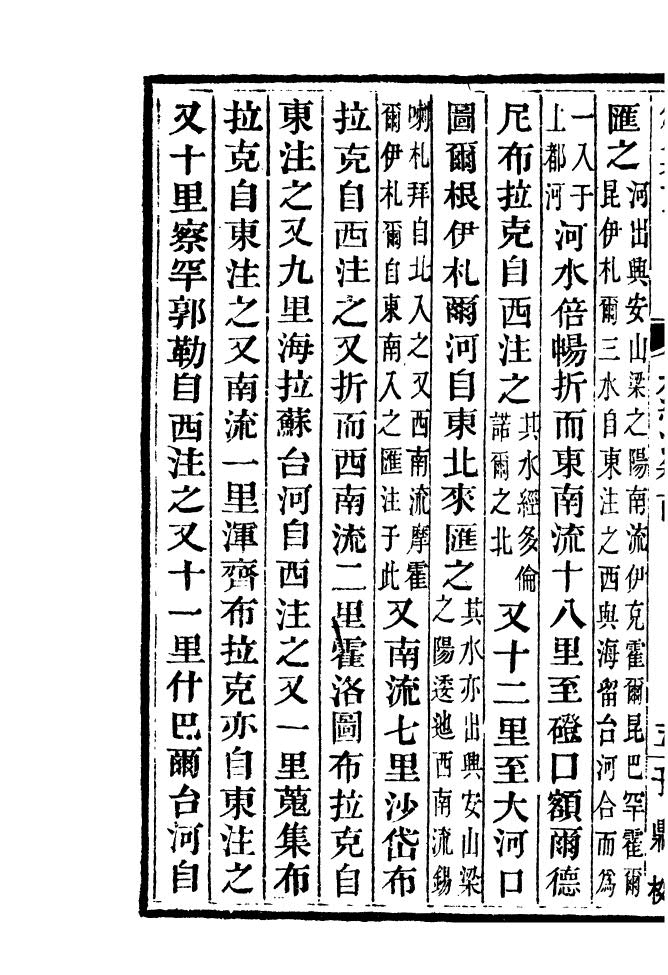 匯之河出興安山梁之陽南流伊克霍爾昆巴罕霍爾昆伊札爾三水自東注之西與海留台河合而為
一入于上都河河水倍暢折而東南流十八里至磴口額爾德
尼布拉克自西注之其水經多倫諾爾之北又十二里至大河口
圖爾根伊札爾河自東北來匯之其水亦出興安山梁之陽逶迤西南流錫
喇札拜自北入之又西南流摩霍爾伊札爾自東南入之匯注于此又南流七里沙岱布
拉克自西注之又折而西南流二里霍洛圖布拉克自
東注之又九里海拉蘇台河自西注之又一里蒐集布
拉克自東注之又南流一里渾齊布拉克亦自東注之
又十里察罕郭勒自西注之又十一里什巴爾台河自